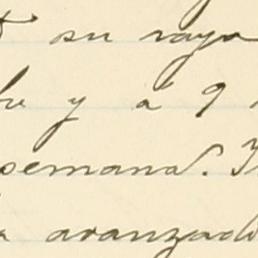 su raya
y á 9
semana.
avanzado